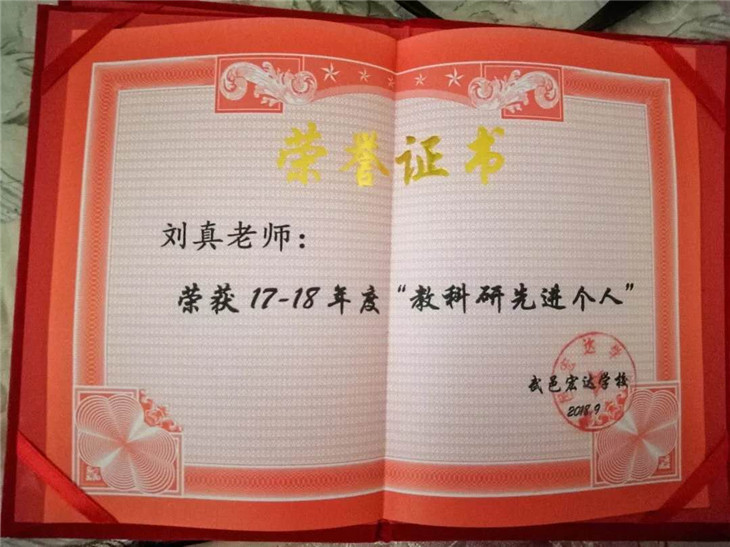 荣誉证书
刘真老师：
荣获17-18年度“教科研先进个人”
武邑宏达学校
2018.9